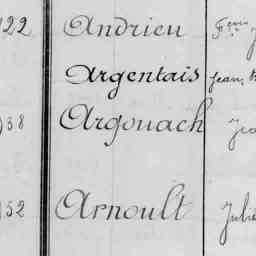 22 Andrieu
Argentais Jean,
38 Argouach
52 Arnoult